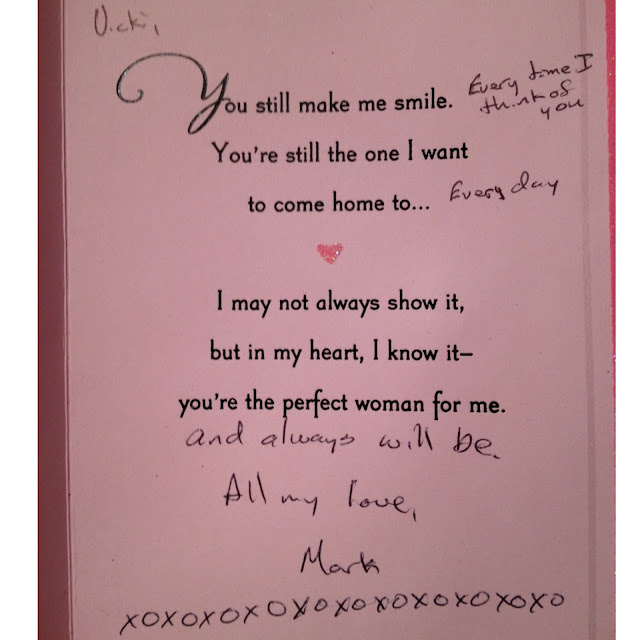 Vicki,
You still make me smile. Every time I
think of
you
You're still the one I want
to come home to... Every day
I may not always show it,
but in my heart, I know it–
you're the perfect woman for me.
and always will be.
All my love,
Mark
XOXOXOXOXOXOXOXOXOXOXO